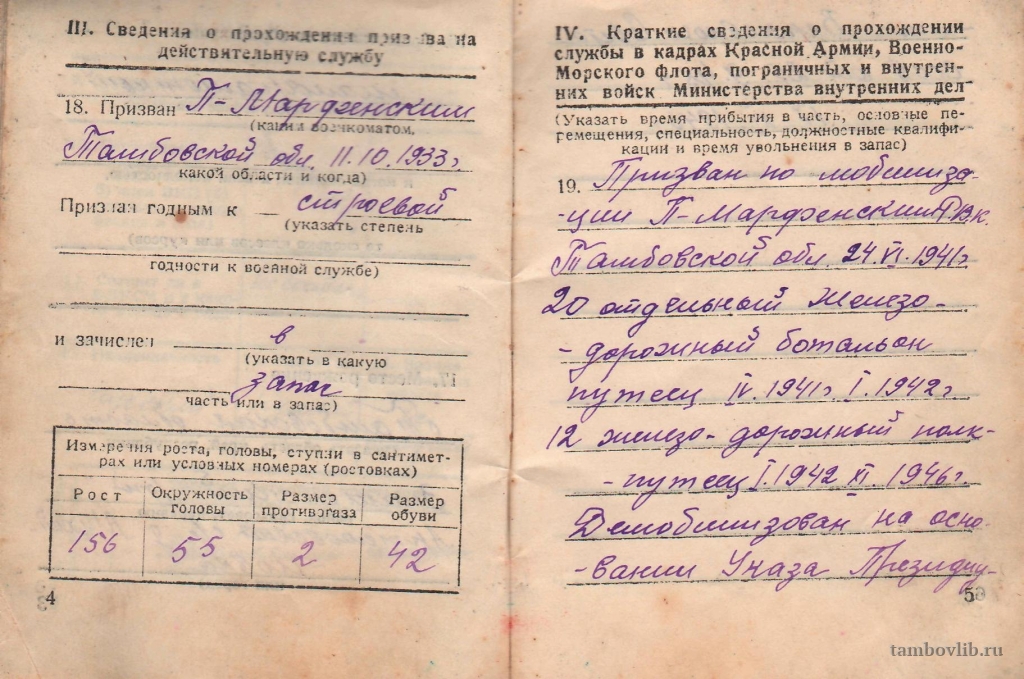 III. Сведения о прохождении призыва на
действительную службу
18. Призван П-Марфенским
(каким военкоматом,
Тамбовской обл. 11.10.1933г.
какой области и когда)
Признан годным к строевой
(указать степень
годности к военной службе)
и зачислен в
(указать в какую
запас
часть или в запас)
Измерения роста, головы, ступни в сантимет-
рах или условных номерах (ростовках)
Рост Окружность головы Размер противогаза Размер обуви
156 55 2 42
4
IV. Краткие сведения о прохождении
службы в кадрах Красной Армии, Военно-
Морского флота, пограничных и внутрен-
них войск Министерства внутренних дел
(Указать время прибытия в часть, основные пе-
ремещения, специальность, должностные квалифи-
кации и время увольнения в запас)
19. Призван по мобилиза-
-ции П-Марфенским Р.В.К.
Тамбовской обл. 24.VI.1941г
20 отдельный железо-
-дорожный ботальон
путеец IV.1941г. I.1942г
12 железо-дорожный полк-
-путеец I.1942 XI.1946г.
Демобилизован на осно-
-вании Указа Президиу-
5
tambovlib.ru